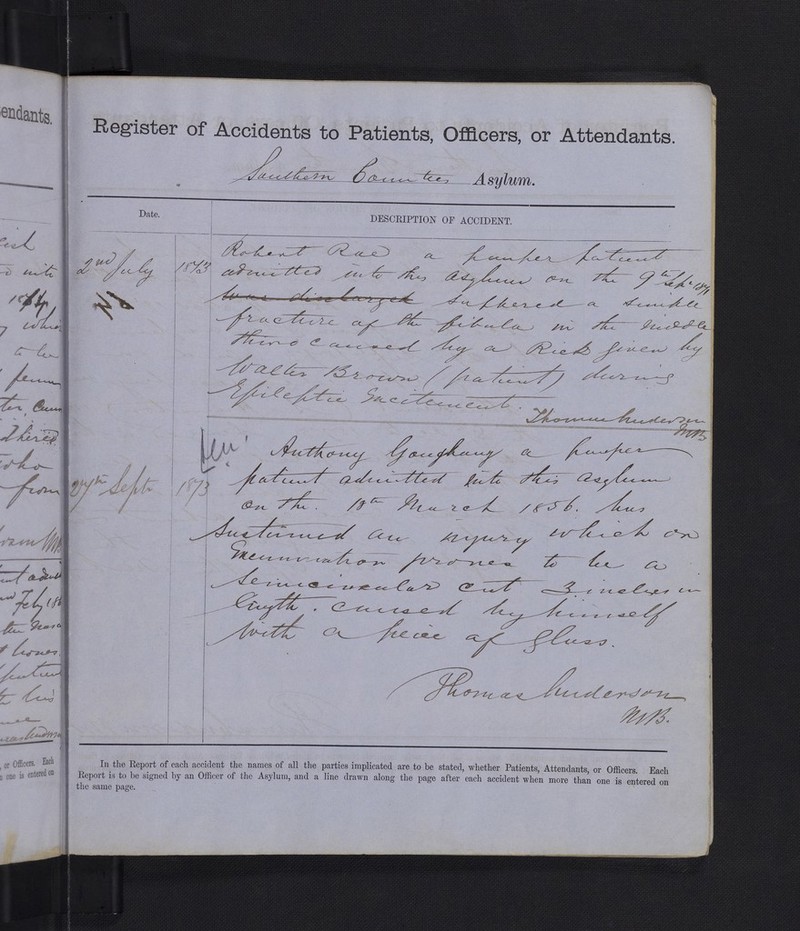 Register of Accidents to Patients, Officers, or Attendants.
Southern Counties Asylum.
Date. DESCRIPTION OF ACCIDENT.
2nd July 1873 Robert Rae a pauper patient
admitted into this Asylum on the 9th Sept
was discharged suffered a simple
fracture of the fibula in the middle
third caused by a Kick given by
Walter Brown (patient) during
Epileptic Excitement.
Thomas Anderson
MB
Anthony a pauper
27th Sept 1873 patient admitted into this asylum
on the 10th March 1856. has
sustained an injury which on
Examination proves to be a
Semicircular cut 3 inches in
length. caused by himself
with a peice of Glass.
Thomas Anderson
MB.
In the Report of each accident the names of all the parties implicated are to be stated, whether Patients, Attendants, or Officers. Each
Report is to be signed by an Officer of the Asylum, and a line drawn along the page after each accident when more than one is entered on
the same page.
endants.
who
from
, or Officers. Each
one is entered on